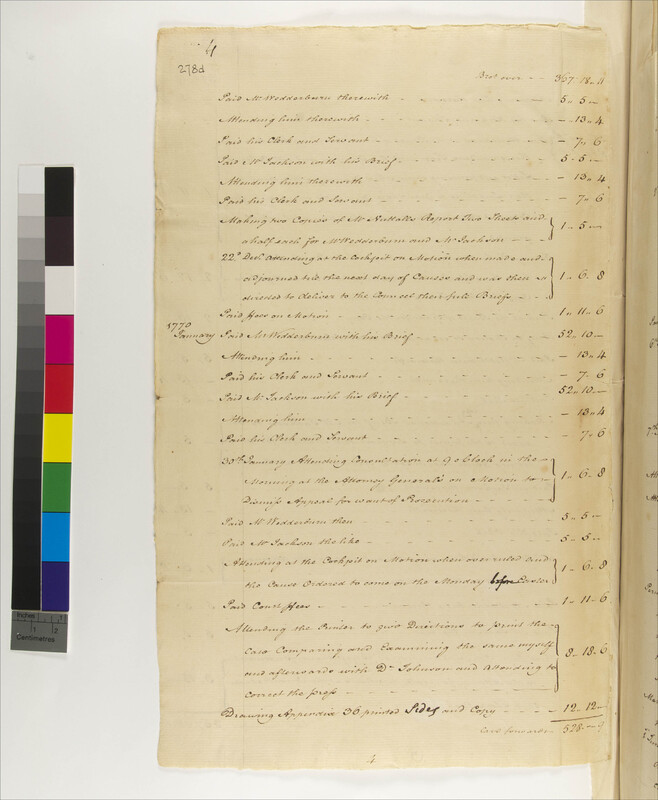 4
278d
Brot over - - 367 18 4
Paid Mr Wedderburn therewith - - - - - 5 - 5 -
Attending him therewith - - - - - - 13 - 4
Paid his Clerk and Servant - - - - - - 7 - 6
Paid Mr Jackson with his Brief - - - - - 5 - 5 -
Attending him therewith - - - - - - 13 - 4
Paid his Clerk and Servant - - - - - - 7 - 6
Making two Copies of Mr Nuttalls Report Two Sheets and
a half each for Mr Wedderburn and Mr Jackson - - - 1 - 5 -
22d Decr. attending at the Cockpit on Motion when made and
adjourned till the next day of Causes and was then 1 - 6 - 8
directed to deliver to the Councel their full Briefs - -
Paid ffees on Motion - - - - - - 1 - 11 - 6
1770
January Paid Mr Wedderburn with his Brief - - - - 52 - 10 -
Attending him - - - - - - - 13 - 4
Paid his Clerk and Servant - - - - - 7 - 6
Paid Mr Jackson with his Brief - - - - 52 - 10 -
Attending him - - - - - - - 13 - 4
Paid his Clerk and Servant - - - - - 7 - 6
30th January Attending Consultation at 9 o Clock in the
Morning at the Attorney General's on Motion to 1 - 6 - 8
Dismiss Appeal for want of Prosecution - - -
Paid Mr Wedderburn then - - - - - 5 - 5 -
Paid Mr Jackson the like - - - - - 5 - 5 -
Attending at the Cockpit on Motion when over ruled and
the Cause Ordered to come on the Monday before Easter 1 - 6 - 8
Paid Court ffees - - - - - - 1 - 11 - 6
Attending the Printer to give Directions to print the
Case Comparing and Examining the same myself 8 - 18 - 6
and afterwards with Dr Johnson and Attending to
correct the press - - - - - -
Drawing Appendix 36 printed Sides and Copy - - - - 12 - 12 -
Card forward - 528 -
4
Inches
1 2
Centimetres